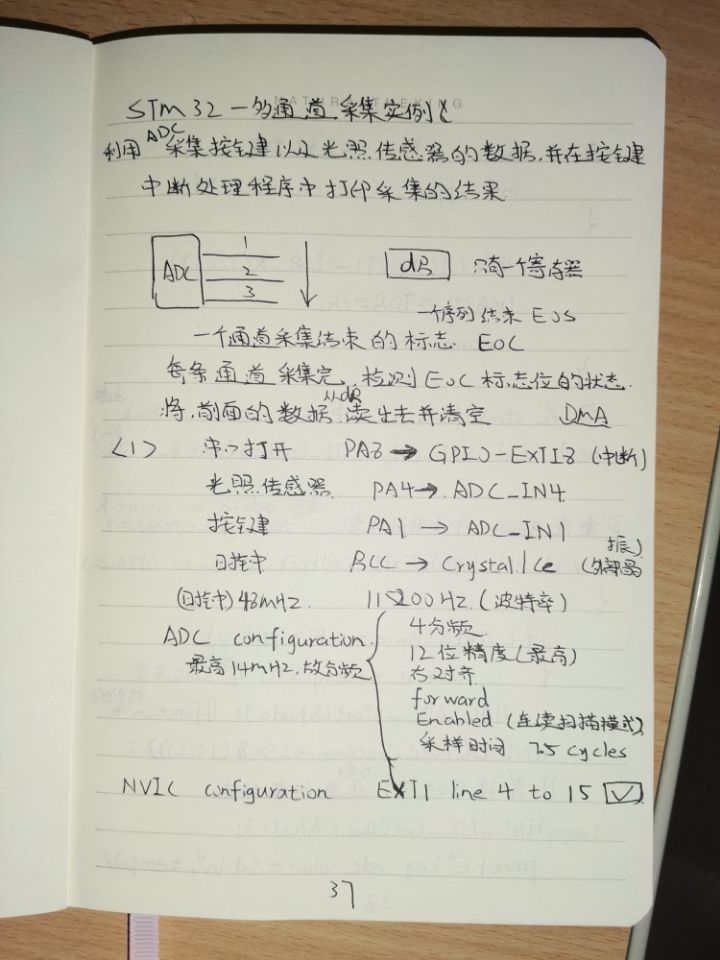 STM32 一多通道采集实例
利用ADC采集按键以及光照传感器的数据,并在按键
中断处理程序中打印采集的结果
ADC 1 2 3 dR 只有一个寄存器
一个序列结束 EOS
一个通道采集结束的标志 EOC
每条通道采集完,检测EOC标志位的状态.
将前面的数据从dR读出去并清空 DMA
<1> 串口打开 PA8 → GPIO-EXTI8 (中断)
光照传感器 PA4 → ADC_IN4
按键 PA1 → ADC_IN1
时钟 RCC → Crystal/Ce (外部晶振)
(时钟) 48mHz. 115200Hz.(波特率)
ADC configuration
最高14mHz,故分频
4分频
12位精度(最高)
右对齐
forward
Enabled (连续扫描模式)
采样时间 7.5 cycles
NVIC configuration EXTI line 4 to 15 ☑
37